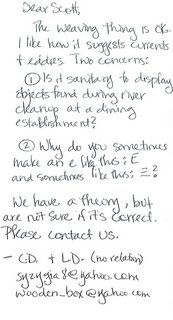 Dear Scott,
The weaving thing is ok.
I like how it suggests currents
+ eddies. Two concerns:
① Is it sanitary to display
objects found during river
cleanup at a dining
establishment?
② Why do you sometimes
make an e like this: E
and sometimes like this: Ξ?
We have a theory, but
are not sure if it's correct.
Please contact us.
- C.D. + L.D. (no relation)
syzygia8@yahoo.com
wooden_box@yahoo.com